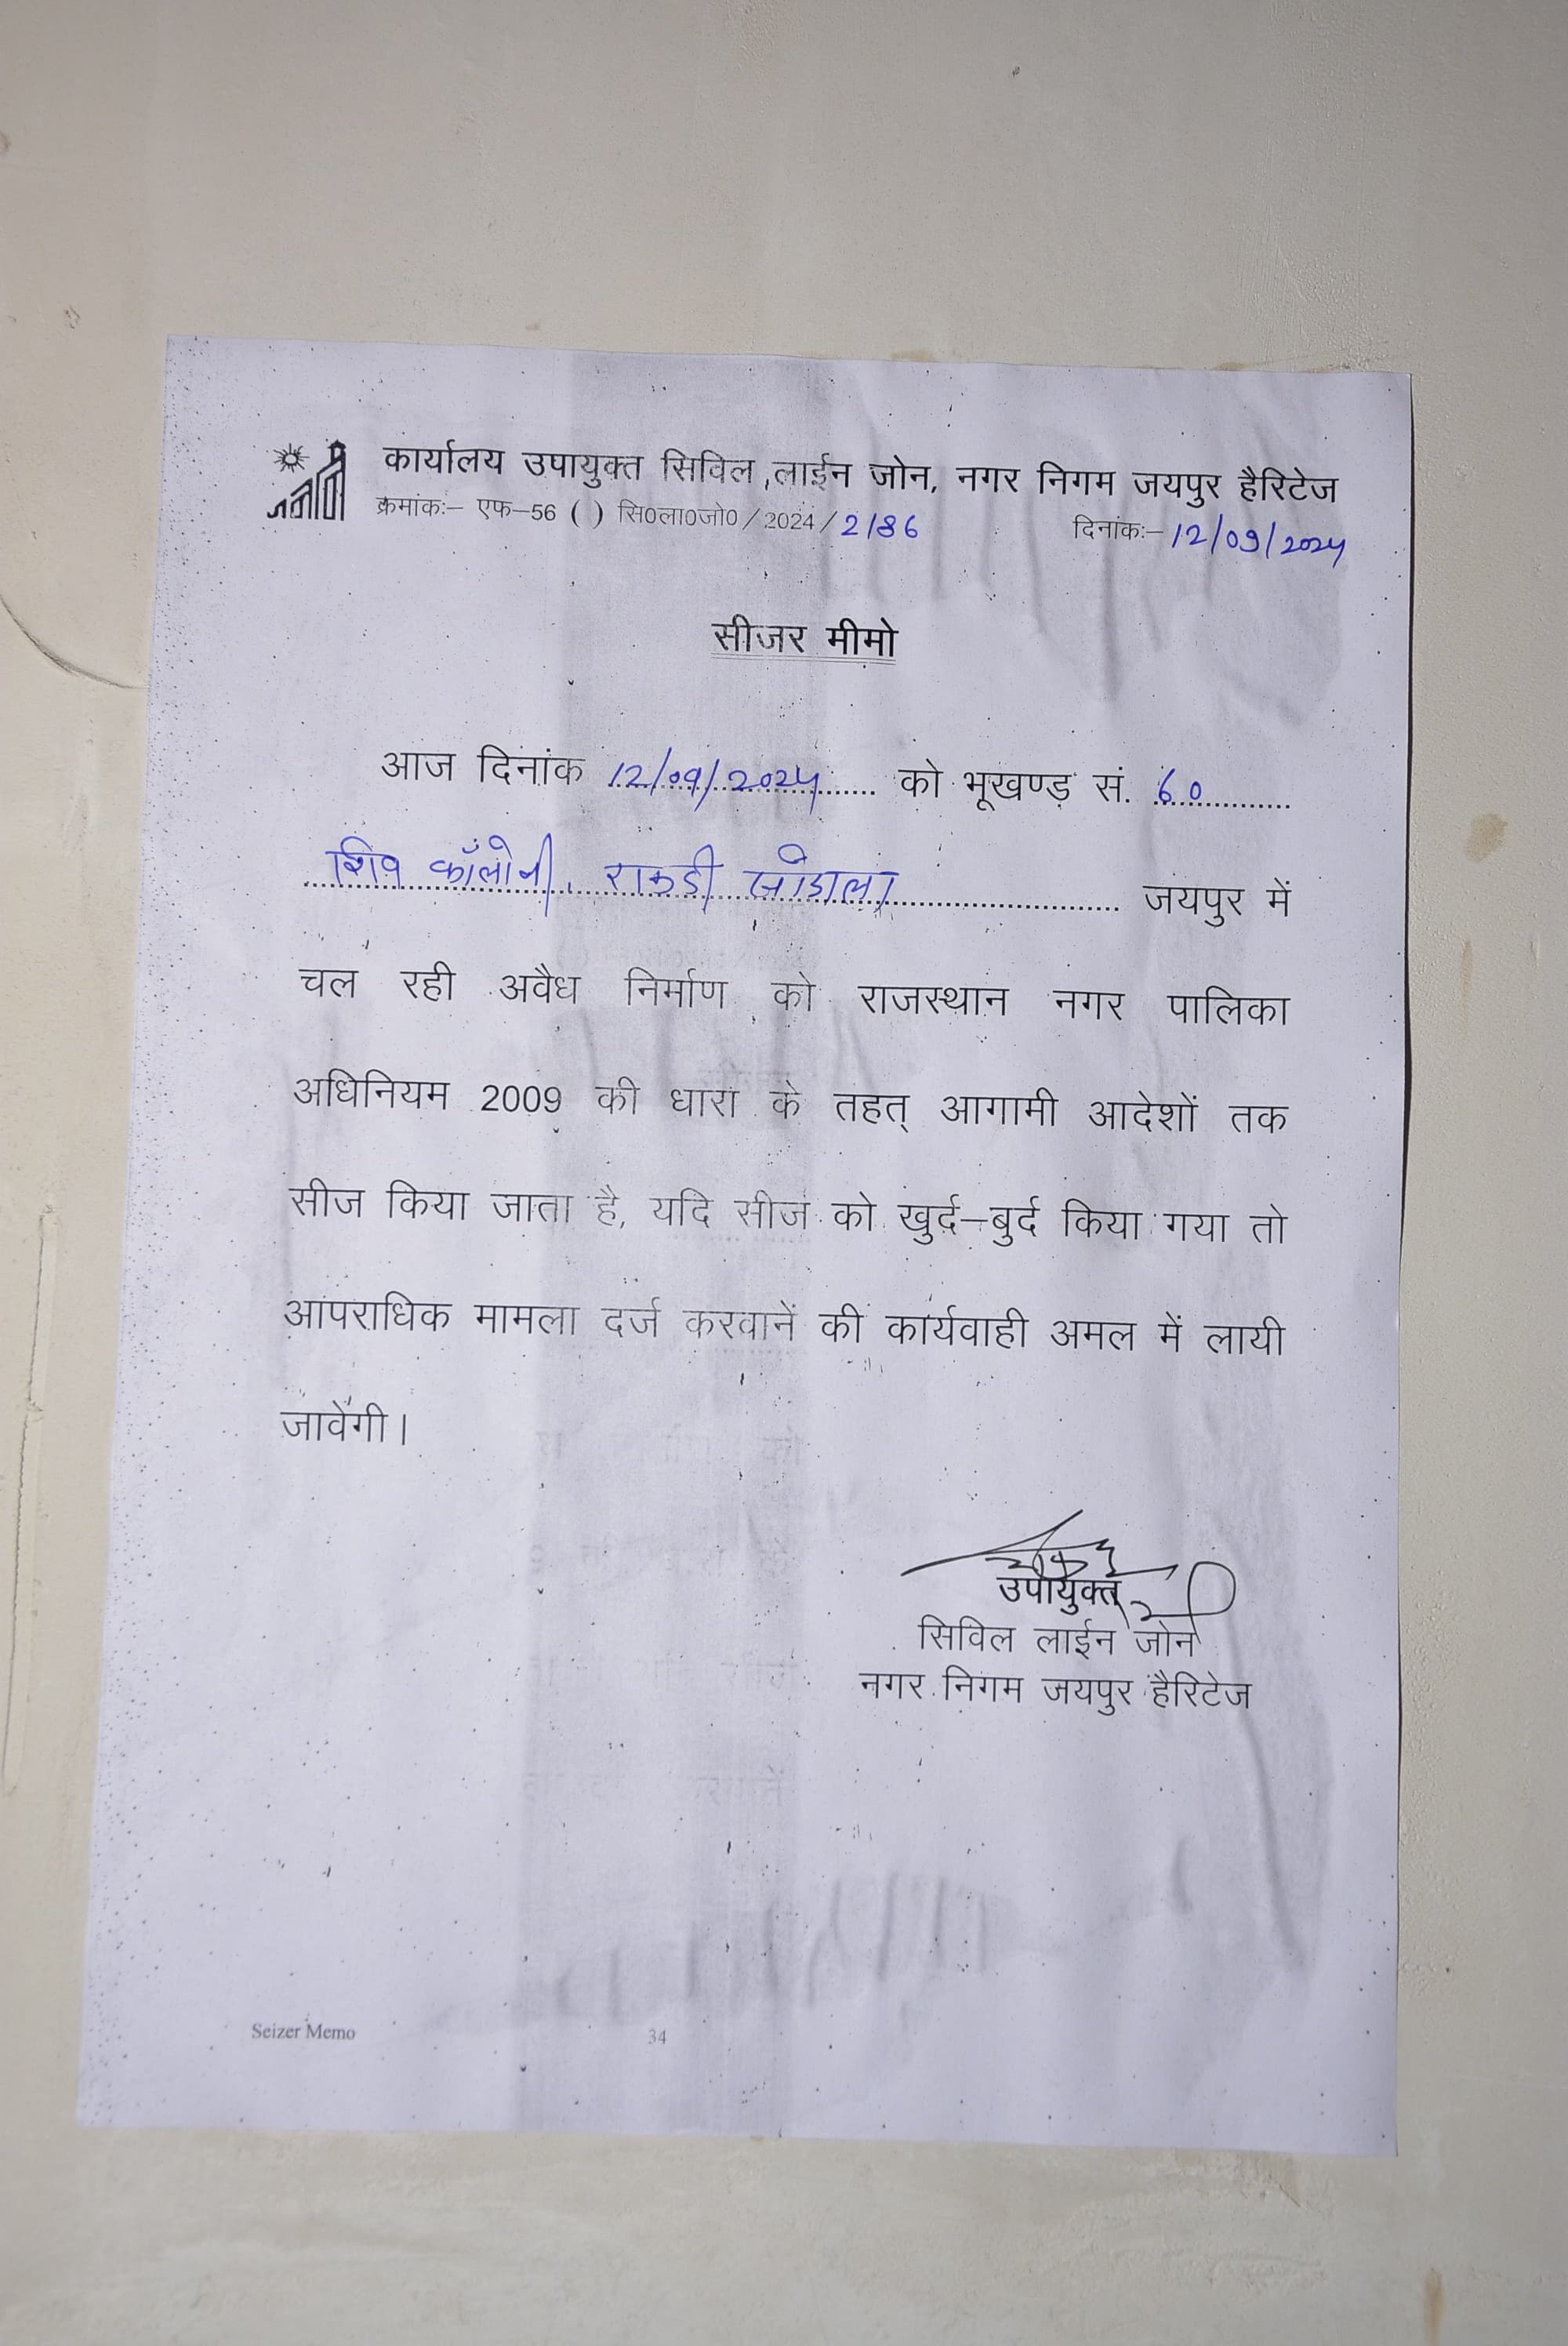 कार्यालय उपायुक्त सिविल ,लाईन जोन, नगर निगम जयपुर हैरिटेज
क्रमांकः– एफ–56 ( ) सि0ला0जो0/2024/2186 दिनांकः– 12/09/2024
सीजर मीमो
आज दिनांक 12/09/2024 को भूखण्ड सं. 60
शिव कॉलोनी, राकडी सोडाला जयपुर में
चल रही अवैध निर्माण को राजस्थान नगर पालिका
अधिनियम 2009 की धारा के तहत् आगामी आदेशों तक
सीज किया जाता है, यदि सीज को खुर्द–बुर्द किया गया तो
आपराधिक मामला दर्ज करवानें की कार्यवाही अमल में लायी
जावेंगी।
उपायुक्त
सिविल लाईन जोन
नगर निगम जयपुर हैरिटेज
Seizer Memo 34